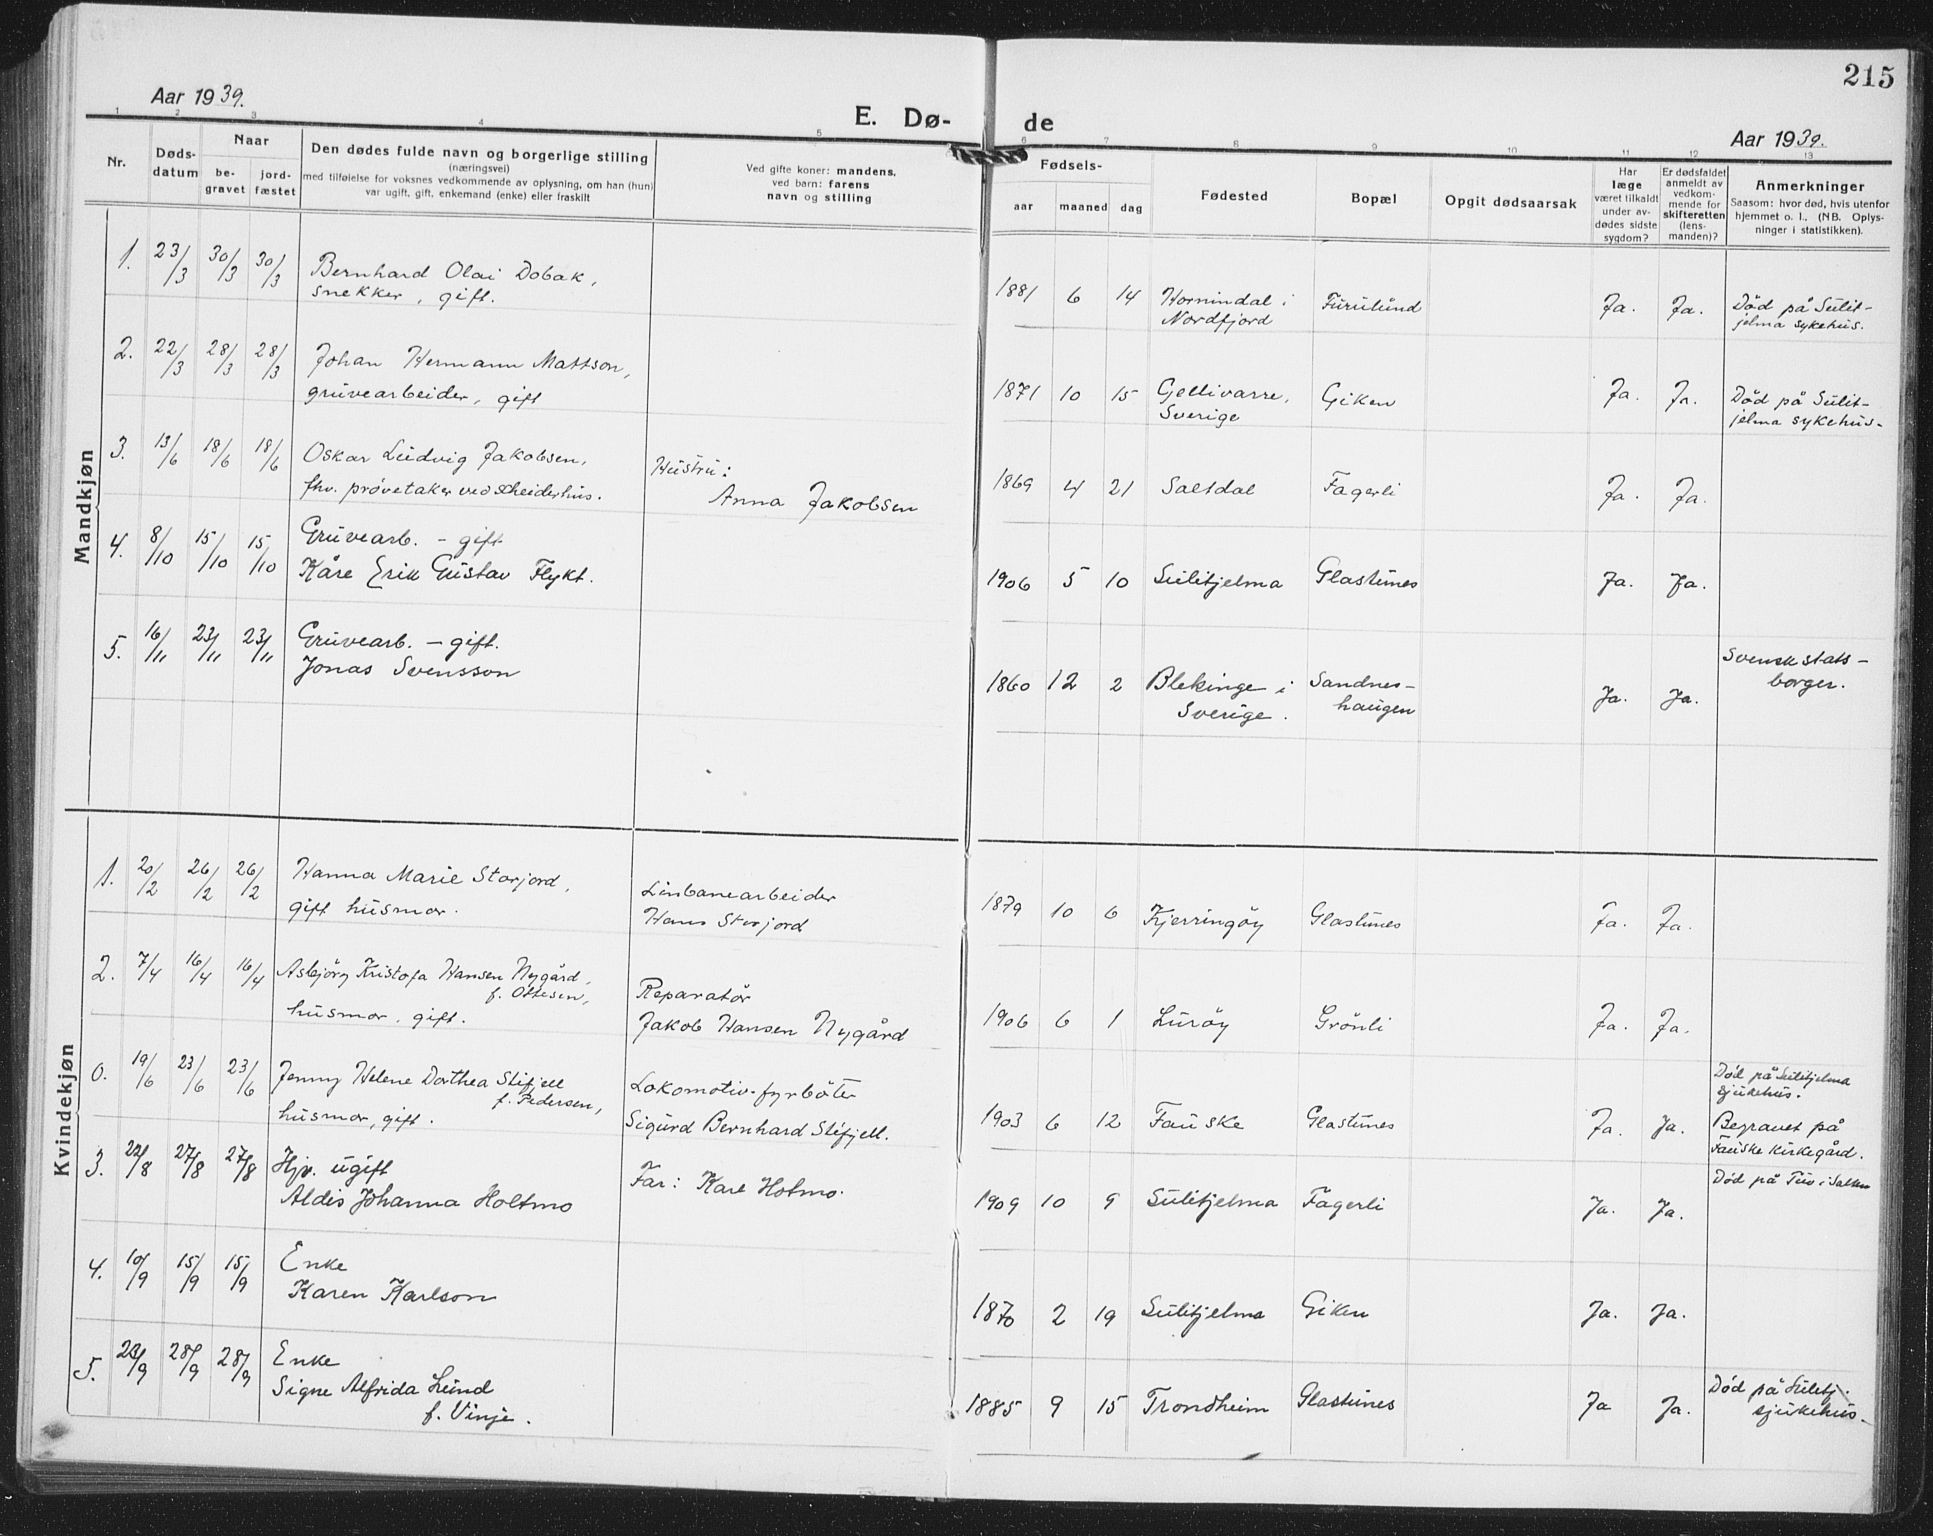 215
Aar 1939.
E. Dø-
de
Aar 1939.
1 2 3 4 5 6 7 8 9 10 11 12 13
Nr.
Døds-
datum
Naar
be-
gravet
jord-
fæstet
Den dødes fulde navn og borgerlige stilling
(næringsvei)
med tilføielse for voksnes vedkommende av oplysning, om han (hun)
var ugift, gift, enkemand (enke) eller fraskilt
Ved gifte koner: mandens,
ved barn: farens
navn og stilling
Fødsels-
aar maaned dag
Fødested
Bopæl
Opgit dødsaarsak
Har
læge
været tilkaldt
under av-
dødes sidste
sygdom?
Er dødsfaldet
anmeldt av
vedkom-
mende for
skifteretten
(lens-
manden)?
Anmerkninger
Saasom: hvor død, hvis utenfor
hjemmet o. l., (NB. Oplys-
ninger i statistikken).
Mandkjøn
1. 23/3 30/3 30/3 Bernhard Olai Dobak,
snekker, gift.
1881 6 14 Hornindal i
Nordfjord
Furulund Ja. Ja. Død på Sulit-
jelma sykehus.
2. 22/3 28/3 28/3 Johan Hermann Mattson,
gruvearbeider, gift
1871 10 15 Gellivarre,
Sverige
Giken Ja. Ja. Død på Sulit-
jelma sykehus.
3. 13/6 18/6 18/6 Oskar Ludvig Jakobsen,
fhv. prøvetaker ved scheiderhus.
Hustru:
Anna Jakobsen
1869 4 21 Saltdal Fagerli Ja. Ja.
4. 8/10 15/10 15/10 Gruvearb. - gift
Kåre Erik Gustav Flykt.
1906 5 10 Sulitjelma Glastunes Ja. Ja.
5. 16/11 23/11 23/11 Gruvearb. - gift.
Jonas Svensson
1860 12 2 Blekinge i
Sverige.
Sandnes-
haugen
Ja. Ja. Svensk stats-
borger.
Kvindekjøn
1. 20/2 26/2 26/2 Hanna Marie Storjord,
gift husmor.
Linbanearbeider
Hans Storjord
1879 10 6 Kjerringöy Glastunes Ja. Ja.
2. 7/4 16/4 16/4 Asbjörg Kristofa Hansen Nygård,
f. Ottesen,
husmor, gift.
Reparatör
Jakob Hansen Nygård
1906 6 1 Luröy Grönli Ja. Ja.
0. 19/6 23/6 23/6 Jenny Helene Dorthea Stifjell
f. Pedersen,
husmor, gift.
Lokomotiv-fyrböter
Sigurd Bernhard Stifjell.
1903 6 12 Fauske Glastunes Ja. Ja. Död på Sulitjelma
sjukehus.
Begravet på
Fauske Kirkegård.
3. 22/8 27/8 27/8 Hjv. ugift
Aldis Johanna Holtmo
Far: Karl Hotmo.
1909 10 9 Sulitjelma Fagerli Ja. Ja. Död på Tuv i Salten
4. 10/9 15/9 15/9 Enke
Karen Karlson
1870 2 19 Sulitjelma Giken Ja. Ja.
5. 23/9 28/9 28/9 Enke
Signe Alfrida Lund
f. Vinje.
1885 9 15 Trondheim Glastunes Ja Ja. Död på Sulitj.
sjukehus.